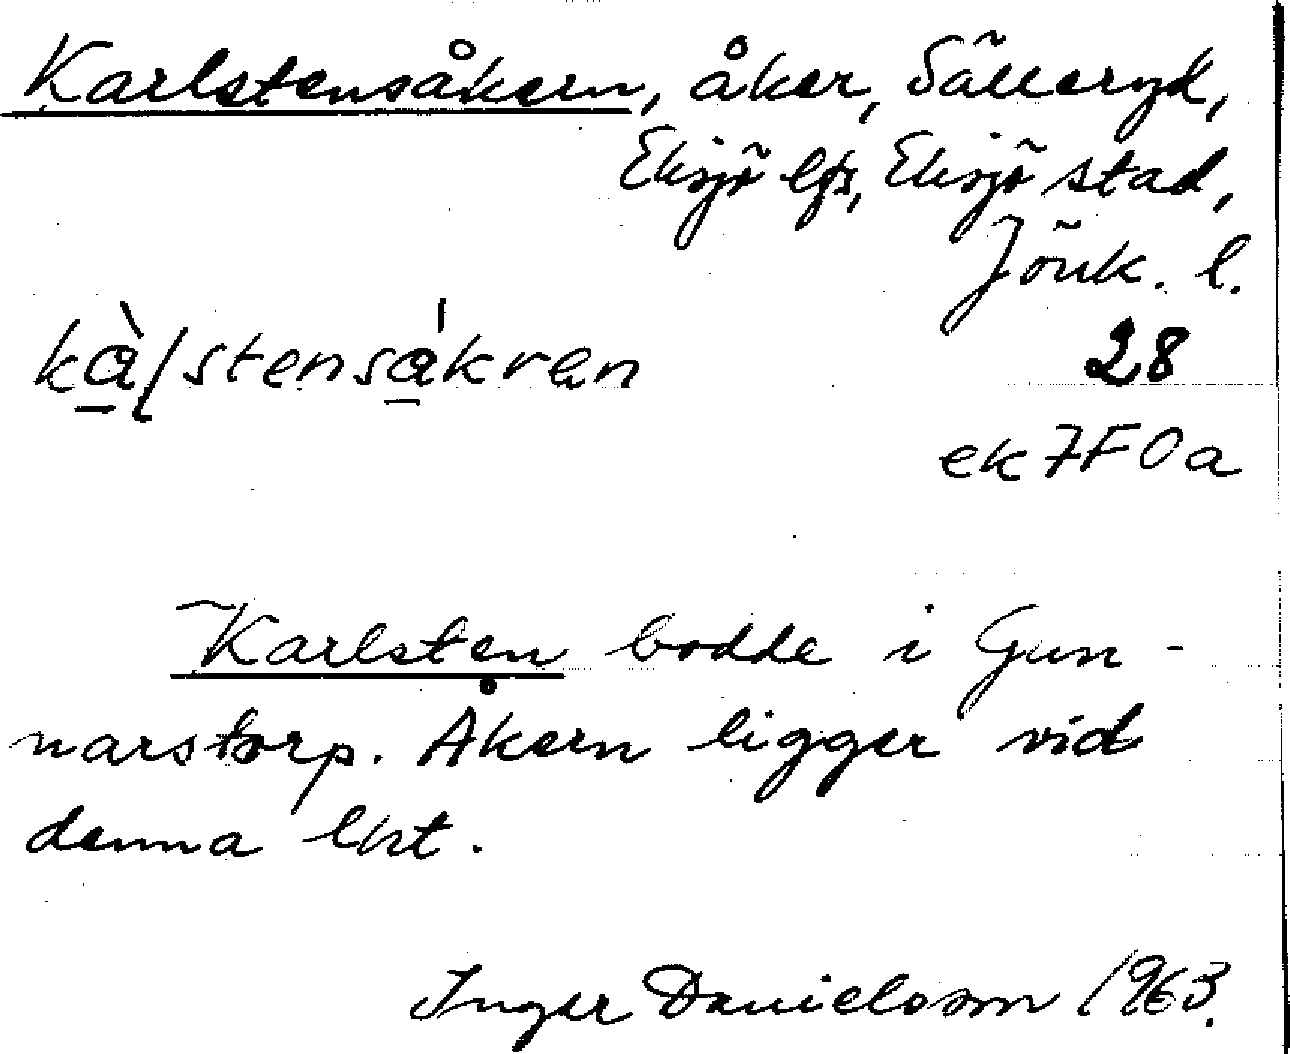 Karlstensåkern, åker, Sälleryd,
Eksjö lfs, Eksjö stad,
Jönk. l.
kàlstensákren
28
ek 7F0a
Karlsten bodde i Gun-
narstorp. Åkern ligger vid
denna lht.
Inger Danielsson 1963.